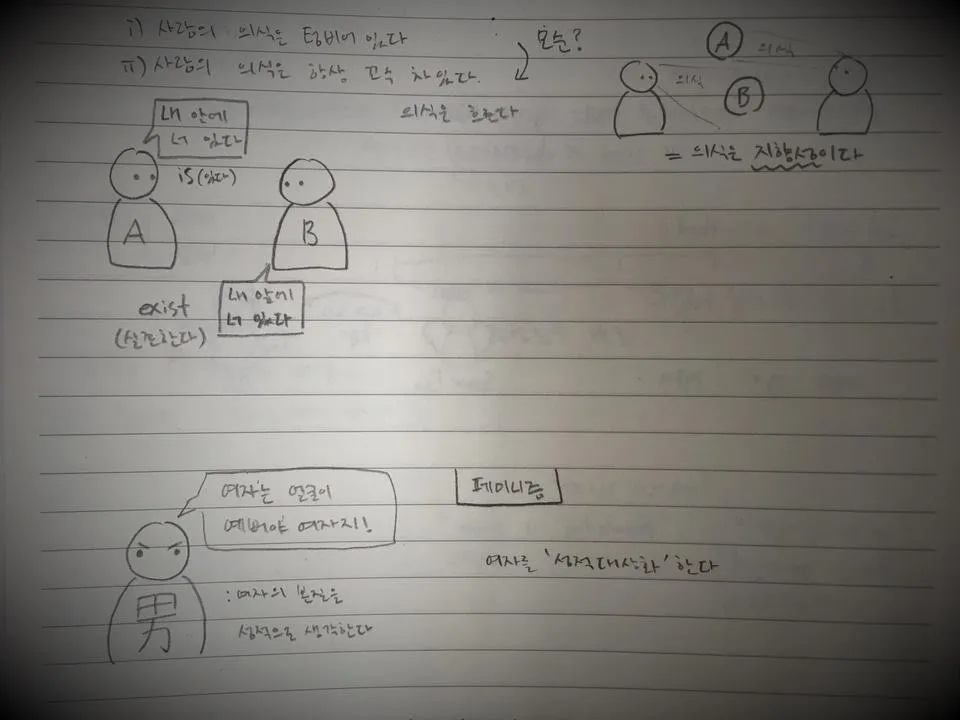 i) 사람의 의식은 텅비어 있다
ii) 사람의 의식은 항상 꼬속 차있다.
모순?
의식은 흐른다
A
의식
의식
B
= 의식은 지향성이다
내 앞에
너 있다
is(있다)
A
B
내 앞에
너 있다
exist
(실존한다)
여자는 얼굴이
예뻐야 여자지!
男
: 여자의 본질을
성적으로 생각한다
페미니즘
여자를 '성적대상화'한다